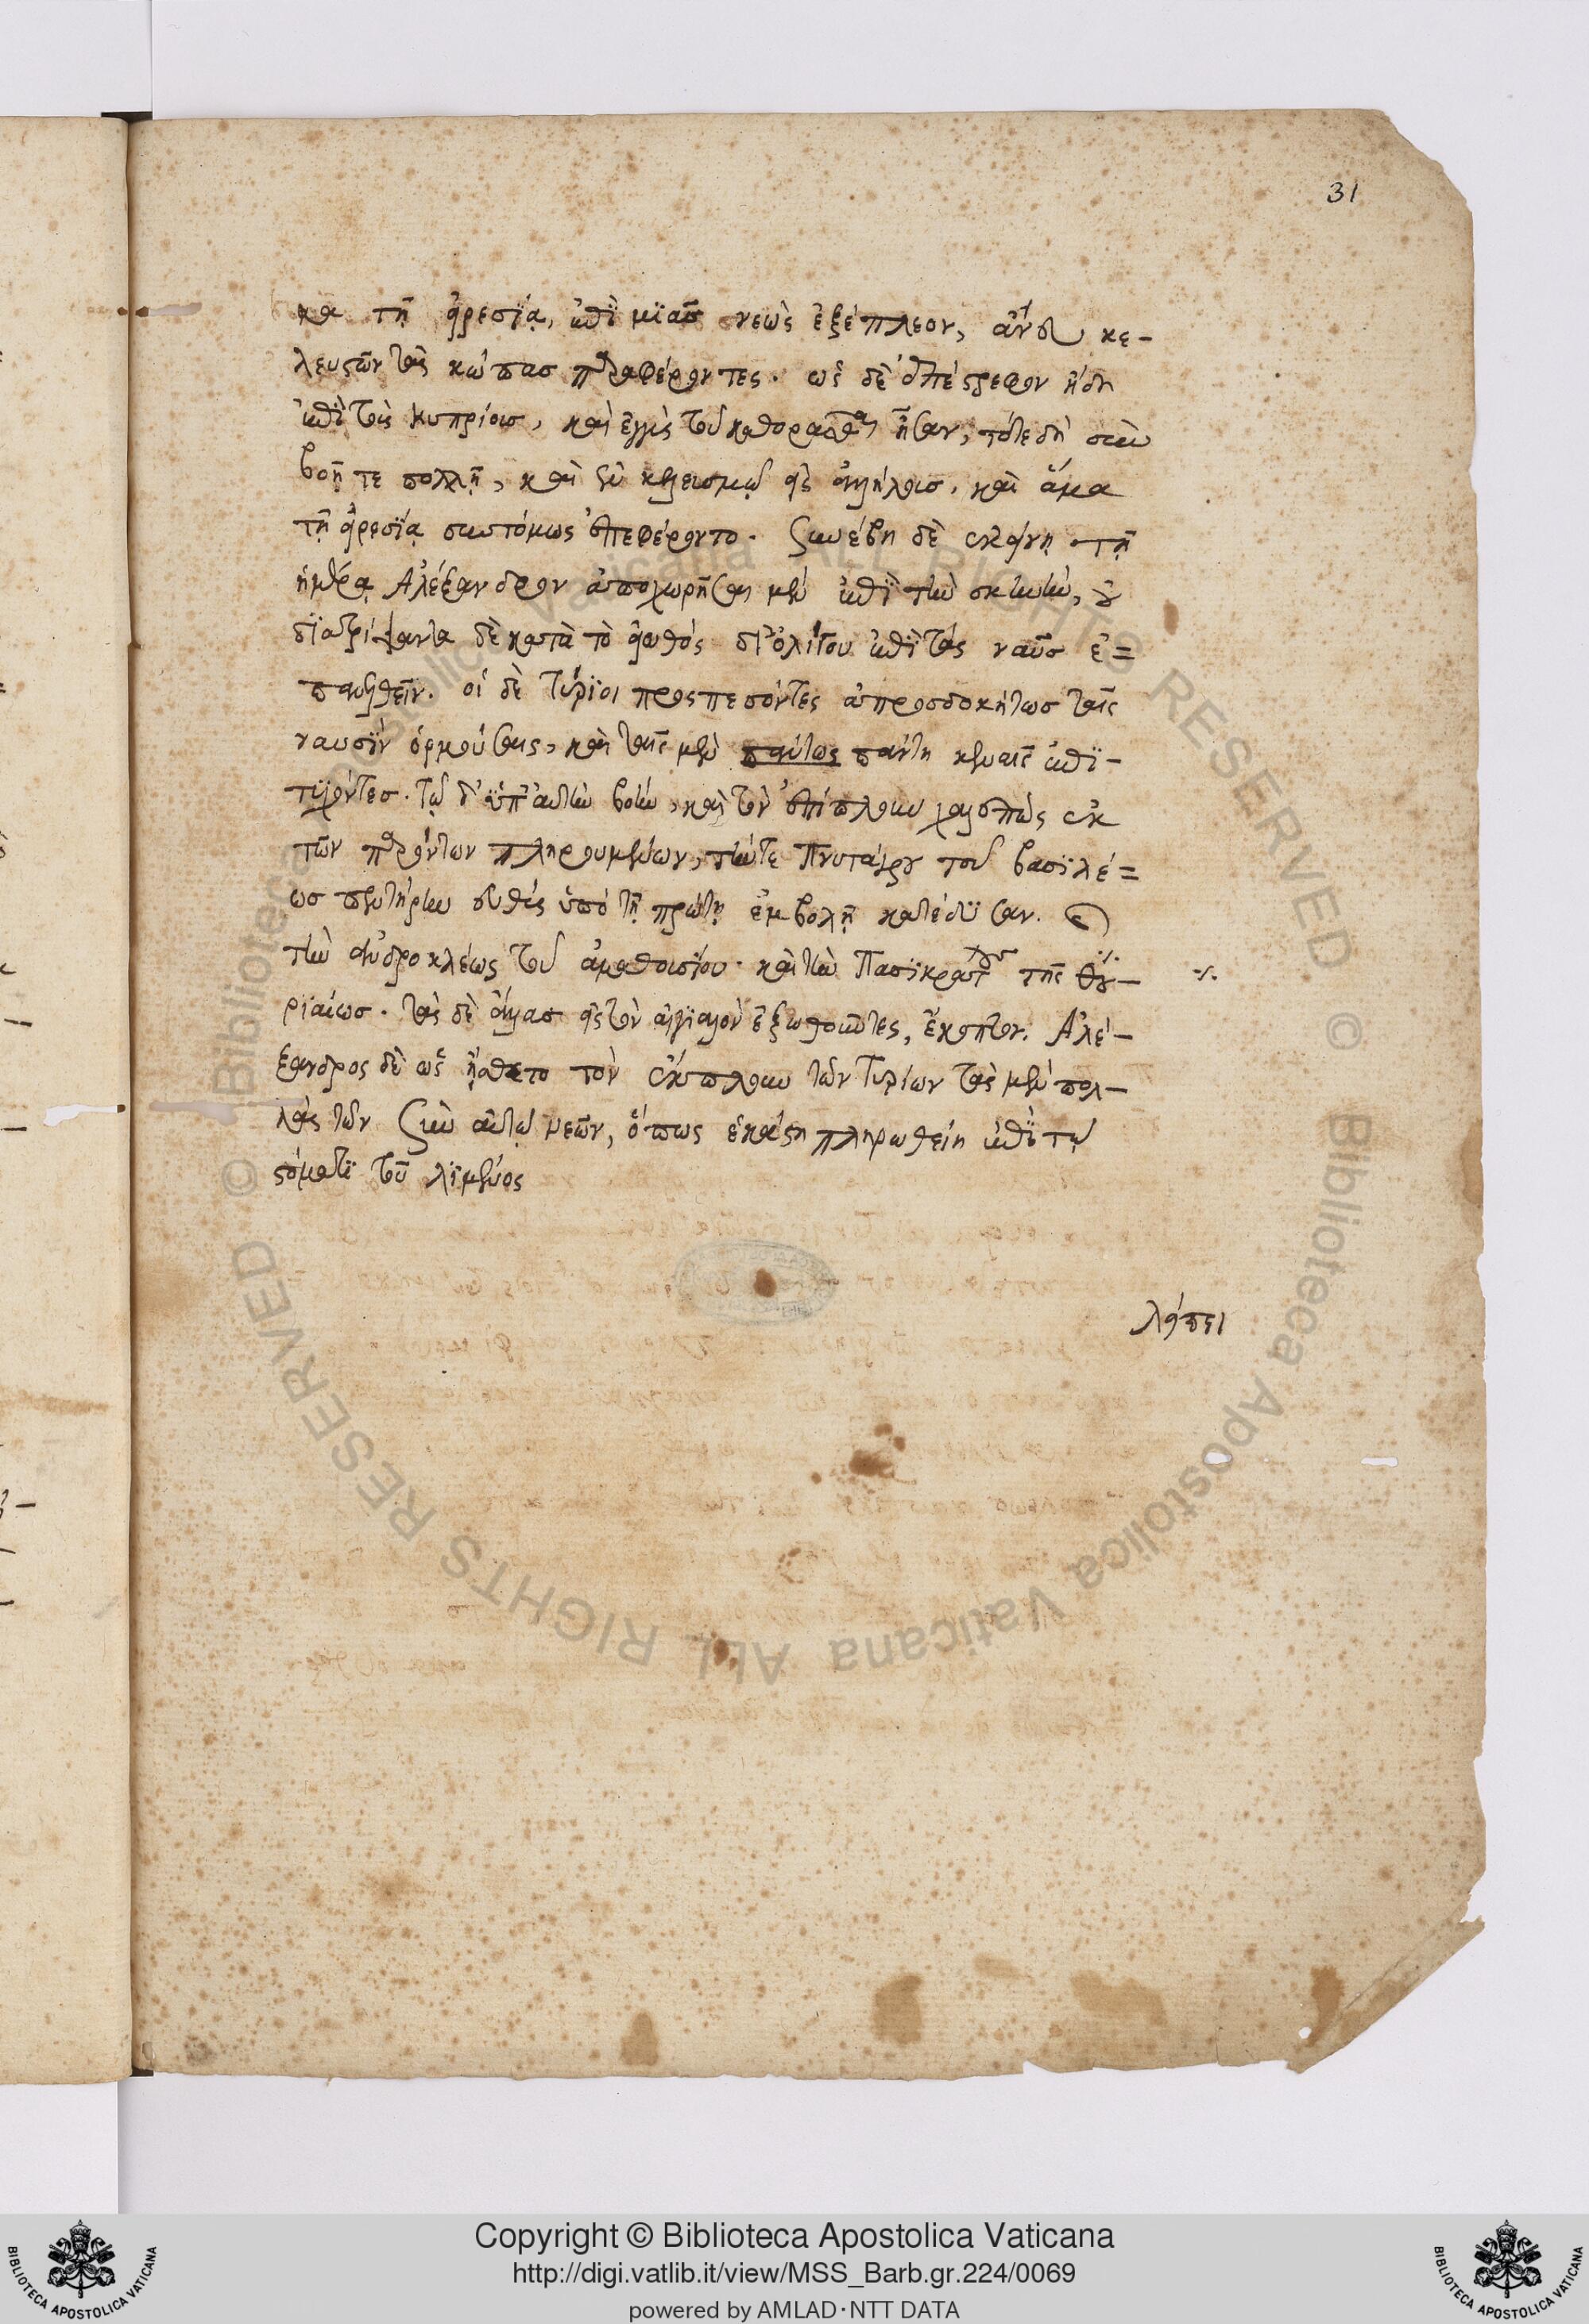 κα τῇ εἰρεσίᾳ, ἐπὶ μιᾶσ νεὼς ἐξέπλεον, ἄνευ κε-
λευστῶν τὰς κώπασ παραφέροντες. ὡς δὲ ἐπέστρεφον ἤδη
ἐπὶ τοὺς κυπρίουσ, καὶ ἐγγὺς τοῦ καθορασθαι ἦσαν, τότε δὴ σὺν
βοῇ τε πολλῇ, καὶ ἐν κελευσμῷ εἰς ἀλλήλουσ. καὶ ἅμα
τῇ εἰρεσίᾳ συντόμως ἐπεφέροντο. ξυνέβη δὲ ἐκείνη τῇ
ἡμέρᾳ Ἀλέξανδρον ἀποχωρῆσαι μὲν ἐπὶ τὴν σκηνὴν, οὐ
διατρίψαντα δὲ κατὰ τὸ εἰωθός δι' ὀλίγου ἐπὶ τὰς ναῦσ ἐ=
πανελθεῖν. οἱ δὲ Τύριοι προσπεσόντες ἀπροσδοκήτωσ ταῖς
ναυσὶν ὁρμούσαις, καὶ ταῖς μὲν πάντως πάντη κεναῖς ἐπι-
τυχόντεσ. τῷ δ' ὑπ' αὐτὴν βοὴν, καὶ τὸν ἐπίπλουν χαλεπῶς ἐκ
τῶν παρόντων πληρουμένων, τήντε Πνυτάγρου τοῦ βασιλέ=
ωσ πεντήρην εὐθὺς ὑπὸ τῇ πρώτῃ ἐμβολῇ κατέδυσαν. καὶ
τὴν ἀνδροκλέως τοῦ ἀμαθουσίου. καὶ τὴν Πασικράτους τῆς θου-
ριαίωσ. τὰς δὲ ἄλλασ εἰς τὸν αἰγιαλὸν ἐξωθοῦντες, ἔκοπτον. Ἀλέ-
ξανδρος δὲ ὡς ᾔσθετο τὸν ἔκπλουν τῶν Τυρίων τὰς μὲν πολ-
λὰς τῶν ξὺν αὐτῷ νεῶν, ὅπως ἑκάστη πληρωθείη ἐπὶ τῷ
στόματι τοῦ λιμένος
λείπει
31